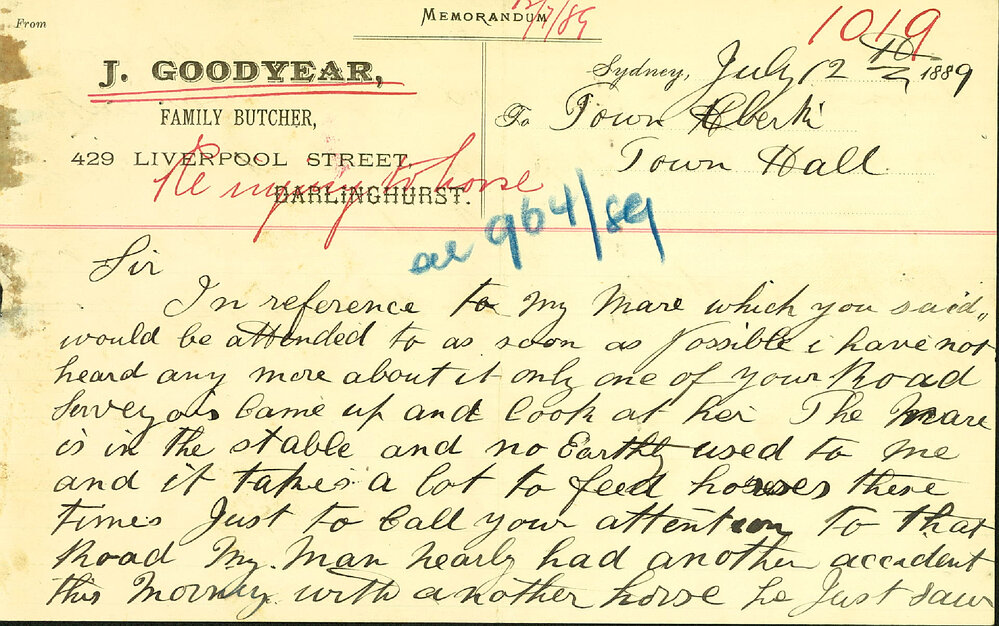 From
MEMORANDUM
12/7/89
1019
J. GOODYEAR,
FAMILY BUTCHER,
429 LIVERPOOL STREET,
DARLINGHURST.
Re injury to horse
Sydney, July 12th 1889
To Town Clerk
Town Hall
964/89
Sir
In reference to My Mare which you said,,
would be attended to as soon as Possible i have not
heard any more about it only one of your Road
Serveyors Came up and look at her The Mare
is in the stable and no Earthly used to me
and it takes a lot to feed horses these
times Just to Call your attention to that
Road My Man nearly had another accident
this Morning with another horse he Just saw